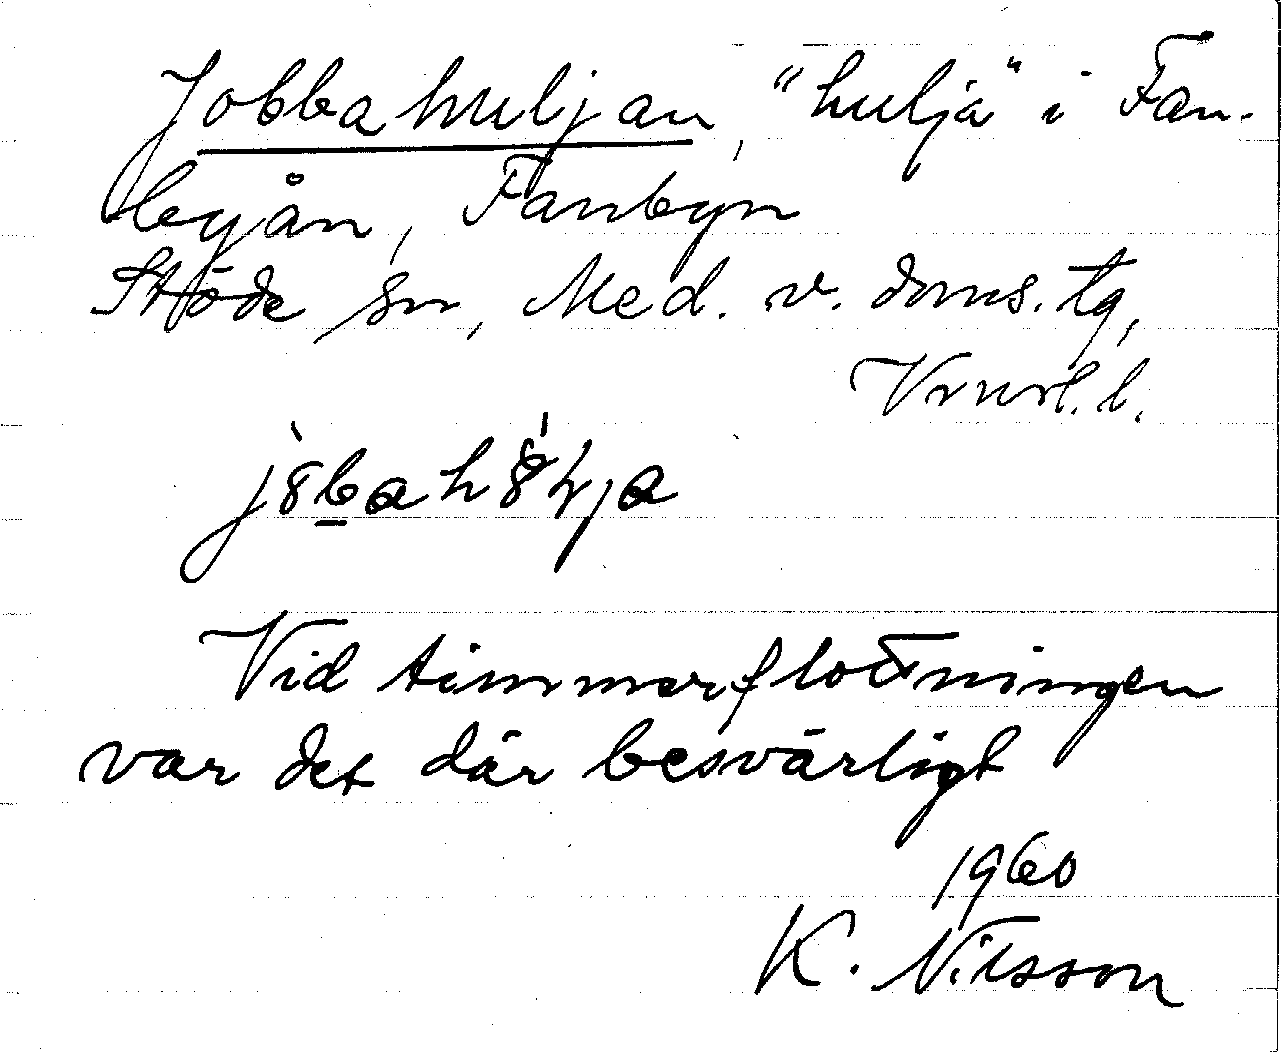 Jobbahuljan, "hulja" i Fan-
byån, Fanbyn
Stöde sn, Med. v. doms. tg,
Vrnrl. l.
Vid timmerflottningen
var det där besvärligt
1960
K. Nilsson